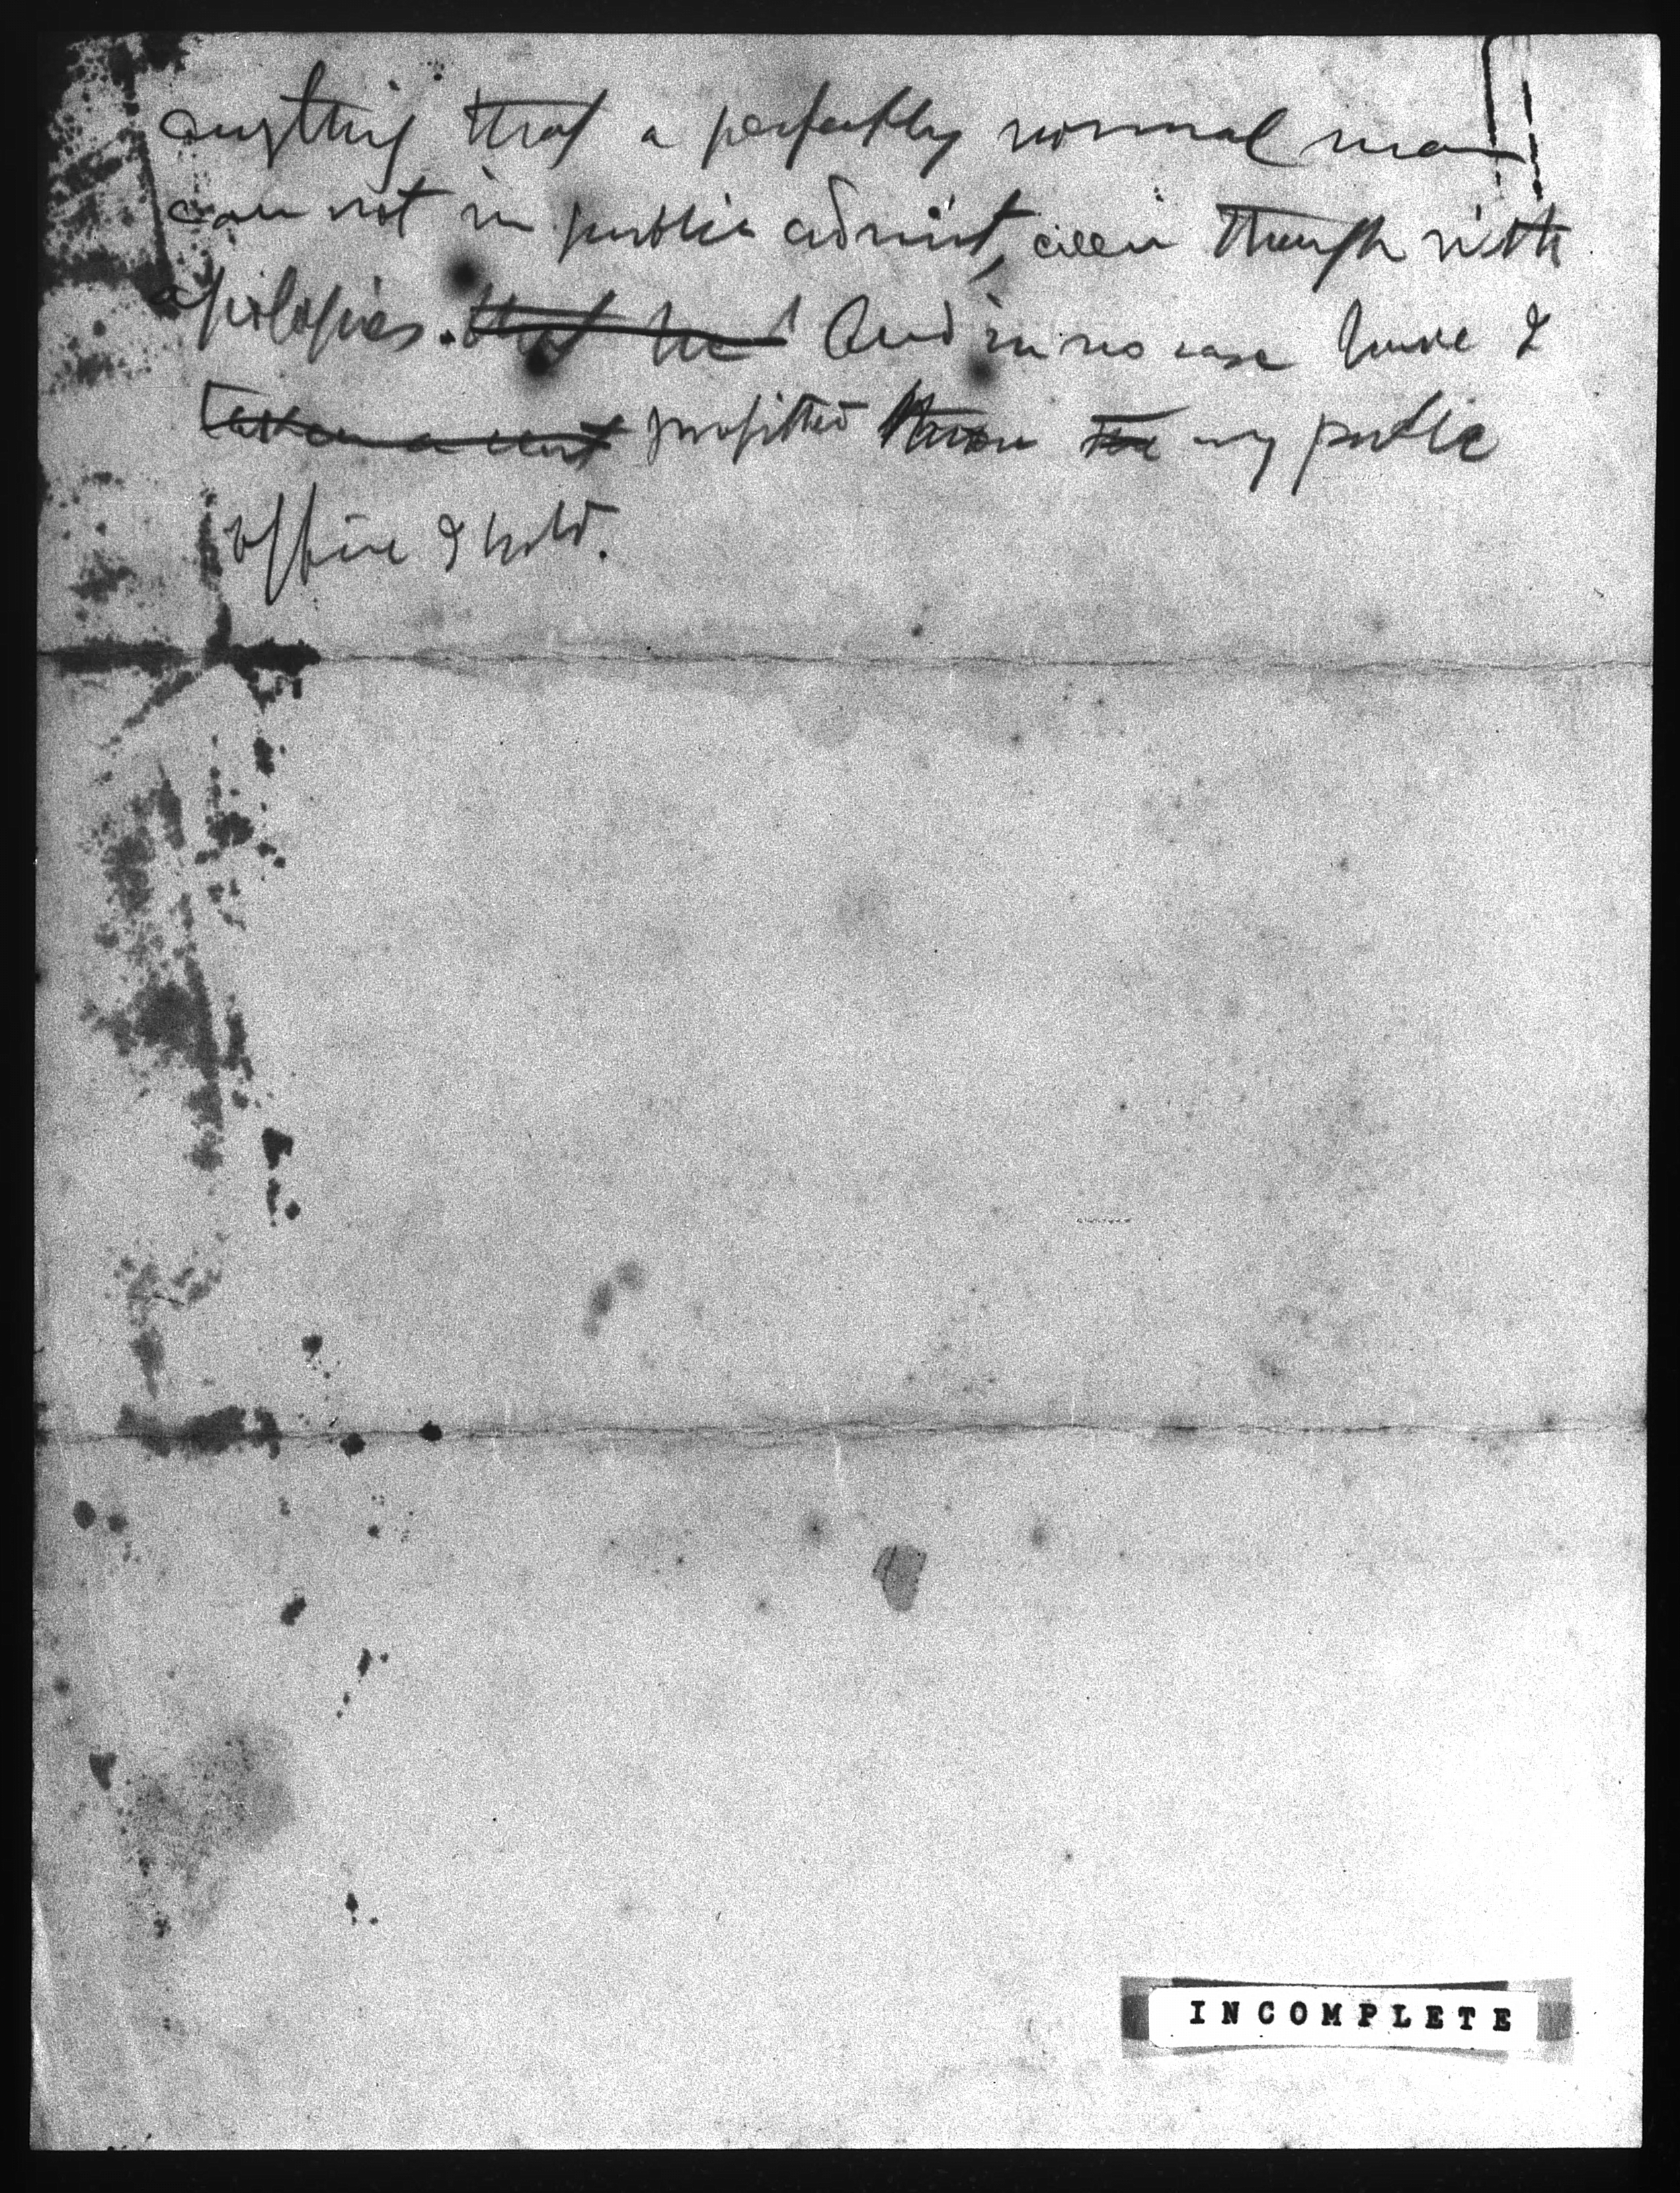 anything that a perfectly normal man
can not in public admit, even though with
apologies. that he And in no case have I
taken a cent profitted from the my public
office I hold.
INCOMPLETE